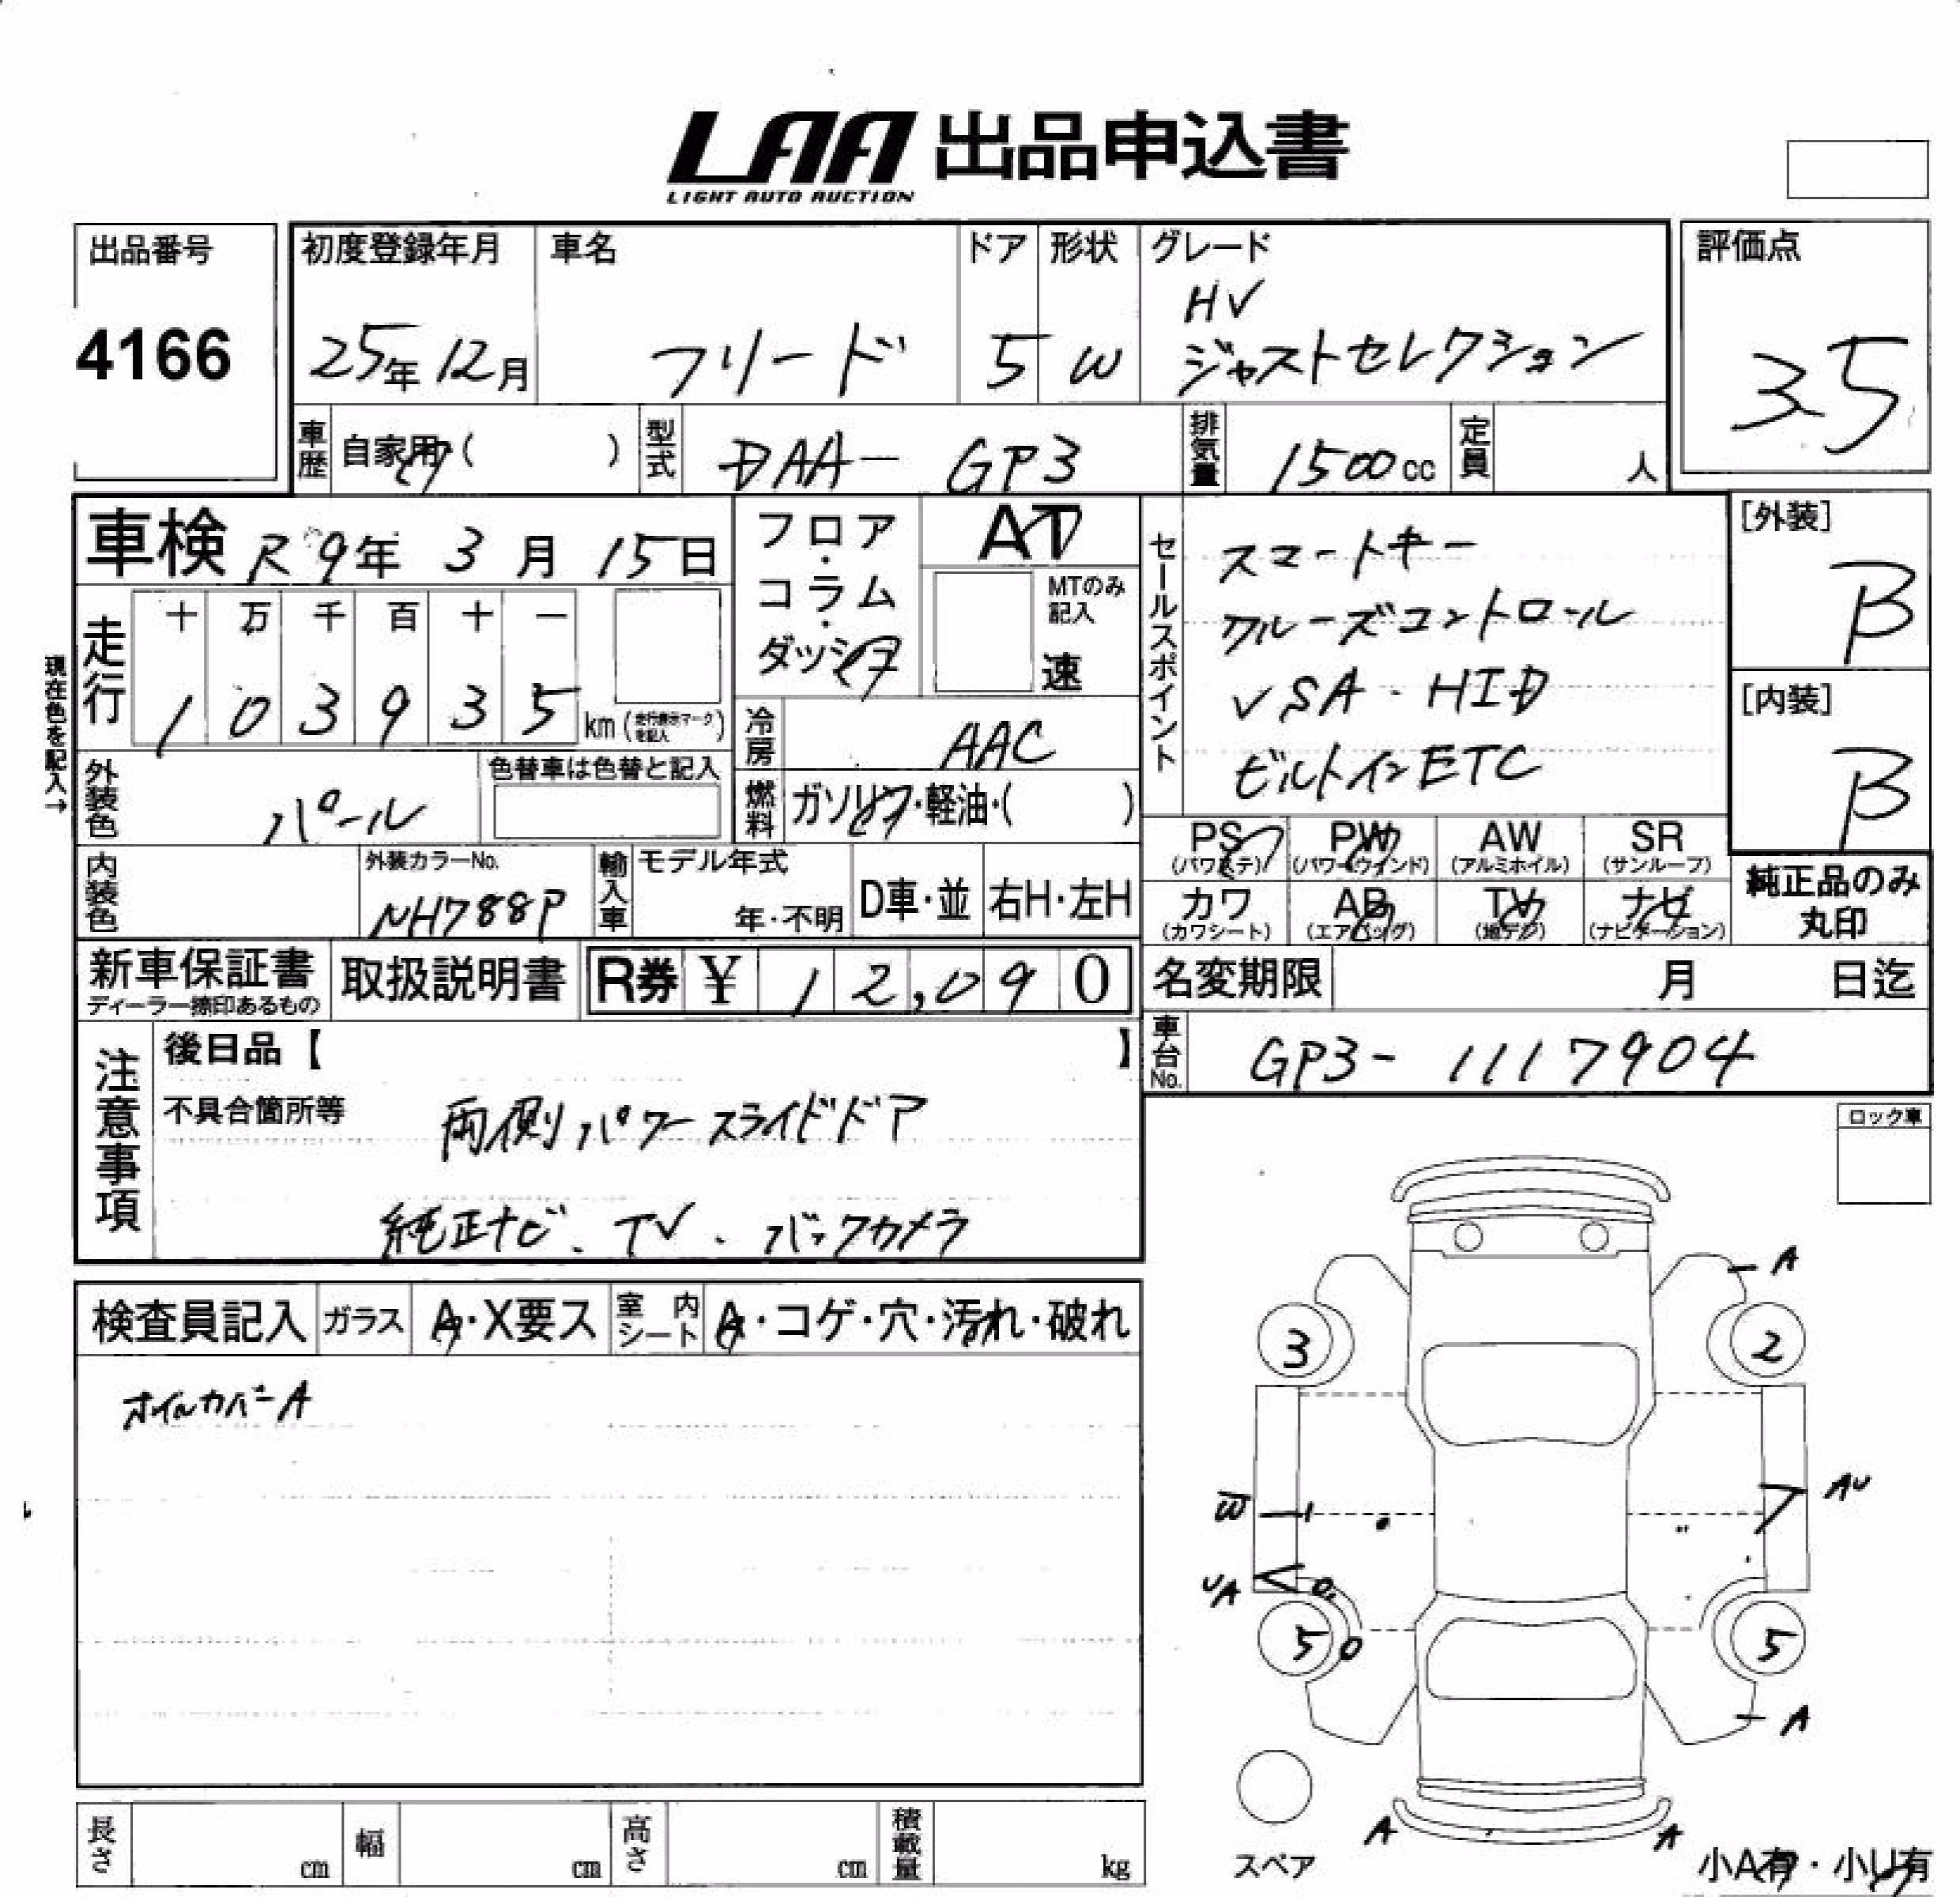 LAA 出品申込書
LIGHT AUTO AUCTION
出品番号
4166
初度登録年月
25年12月
車名
フリード
ドア
5
形状
W
グレード
HV
ジャストセレクション
評価点
3.5
車歴
自家用 ( )
型式
DAA- GP3
排気量
1500cc
定員
人
車検 R9年3月15日
フロア・コラム・ダッシュ
AT
MTのみ記入
速
セールスポイント
スマートキー
クルーズコントロール
VSA・HID
ビルトインETC
[外装]
B
[内装]
B
現在色を記入→
走行
十 万 千 百 十 一
1 0 3 9 3 5
km (走行表示マークを記入)
冷房
AAC
外装色
パール
色替車は色替と記入
燃料
ガソリン・軽油・( )
PS (パワステ)
PW (パワーウインド)
AW (アルミホイル)
SR (サンルーフ)
カワ (カワシート)
AB (エアバッグ)
TV (地デジ)
ナビ (ナビゲーション)
純正品のみ丸印
内装色
外装カラーNo.
NH788P
輸入車
モデル年式
年・不明
D車・並
右H・左H
新車保証書
ディーラー捺印あるもの
取扱説明書
R券 ¥ 12,090
名変期限 月 日迄
車台No.
GP3-1117904
注意事項
後日品【 】
不具合箇所等
両側パワースライドドア
純正ナビ、TV、バックカメラ
ロック車
検査員記入
ガラス
A・X要ス
室内シート
A・コゲ・穴・汚れ・破れ
ホイルカバーA
A
3
2
W
AU
UA
5
5
A
A
A
スペア
小A有・小U有
長さ cm
幅 cm
高さ cm
積載量 kg